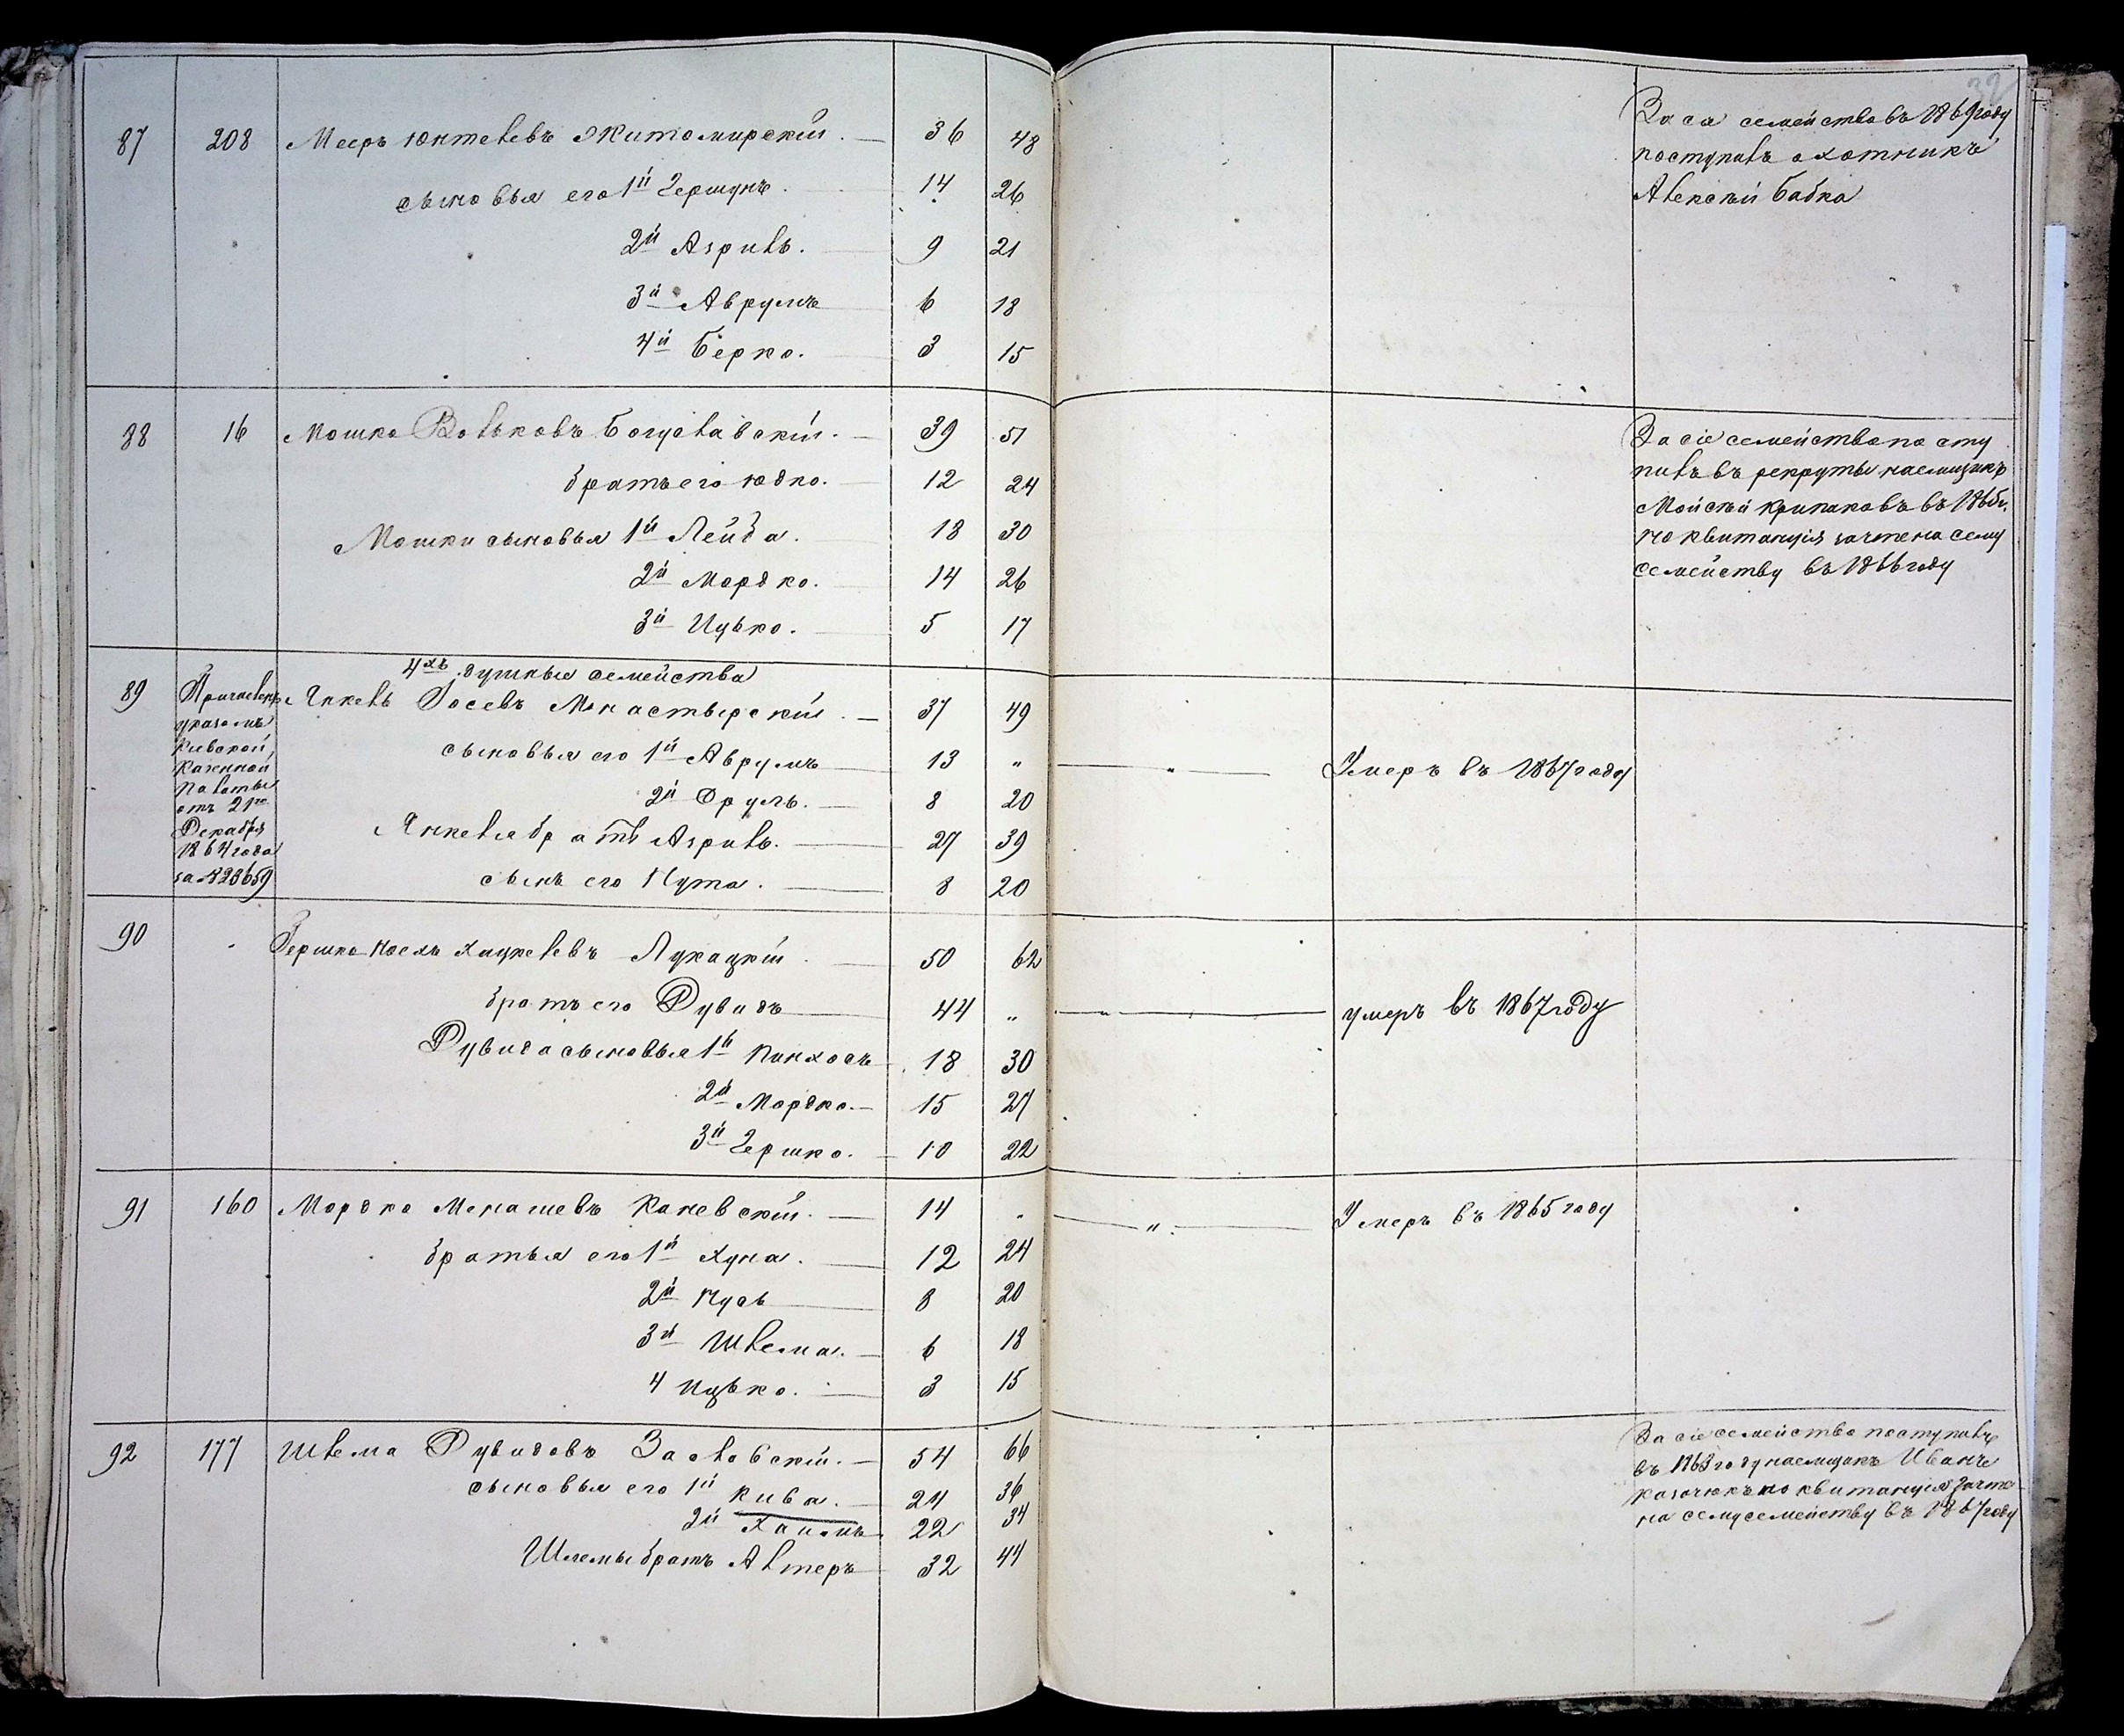 32
87 208 Мееръ Юктелевъ Житомирскій. — 36 48
сыновья его 1й Гершунъ. 14 26
2й Азрилъ. 9 21
3й Аврумъ 6 18
4й Берко. 3 15
За сіе семейство въ 1869 году
поступилъ охотникъ
Алексѣй Бабка
88 16 Мошко Вольковъ Богуславскій. — 39 51
братъ его Юдко. 12 24
Мошки сыновья 1й Лейба. 18 30
2й Мордко. 14 26
3й Ицько. 5 17
За сіе семейство посту
пилъ въ рекруты наемщикъ
Мойсѣй въ 186
но квитанція зачтена сему
семейству въ 1866 году
4хъ душныя семейства
89 Причисленъ Янкель Іосевъ Монастырскій. — 37 49
указомъ
Кіевской
Казенной
Палаты
отъ 21го
Декабря
1864 года
за № 23659
сыновья его 1й Аврумъ 13 „ — „ — Умеръ въ 1867 году
2й Сруль. — 8 20
Янкеля братъ Азрилъ. — 27 39
сынъ его Нута. — 8 20
90 Гершко Ноехъ Хацкелевъ Лукацкій. — 50 62
братъ его Дувидъ 44 „ — „ — умеръ въ 1867 году
Дувида сыновья 1й Пинхосъ 18 30
2й Мордко. — 15 27
3й Гершко. — 10 22
91 160 Мордко Менашевъ Каневскій. — 14 „ — „ — Умеръ въ 1865 году
братья его 1й Хуна. — 12 24
2й Нусь — 8 20
3й Шлема. — 6 18
4 Ицько. — 3 15
92 177 Шлема Дувидовъ Заславскій. — 54 66
сыновья его 1й Кива. — 24 36
2й Хаимъ 22 34
Шлемы братъ Алтеръ 32 44
За сіе семейство поступилъ
въ 1863 году наемщикъ Иванъ
Казачюкъ но квитанція зачте
на сему семейству въ 1867 году